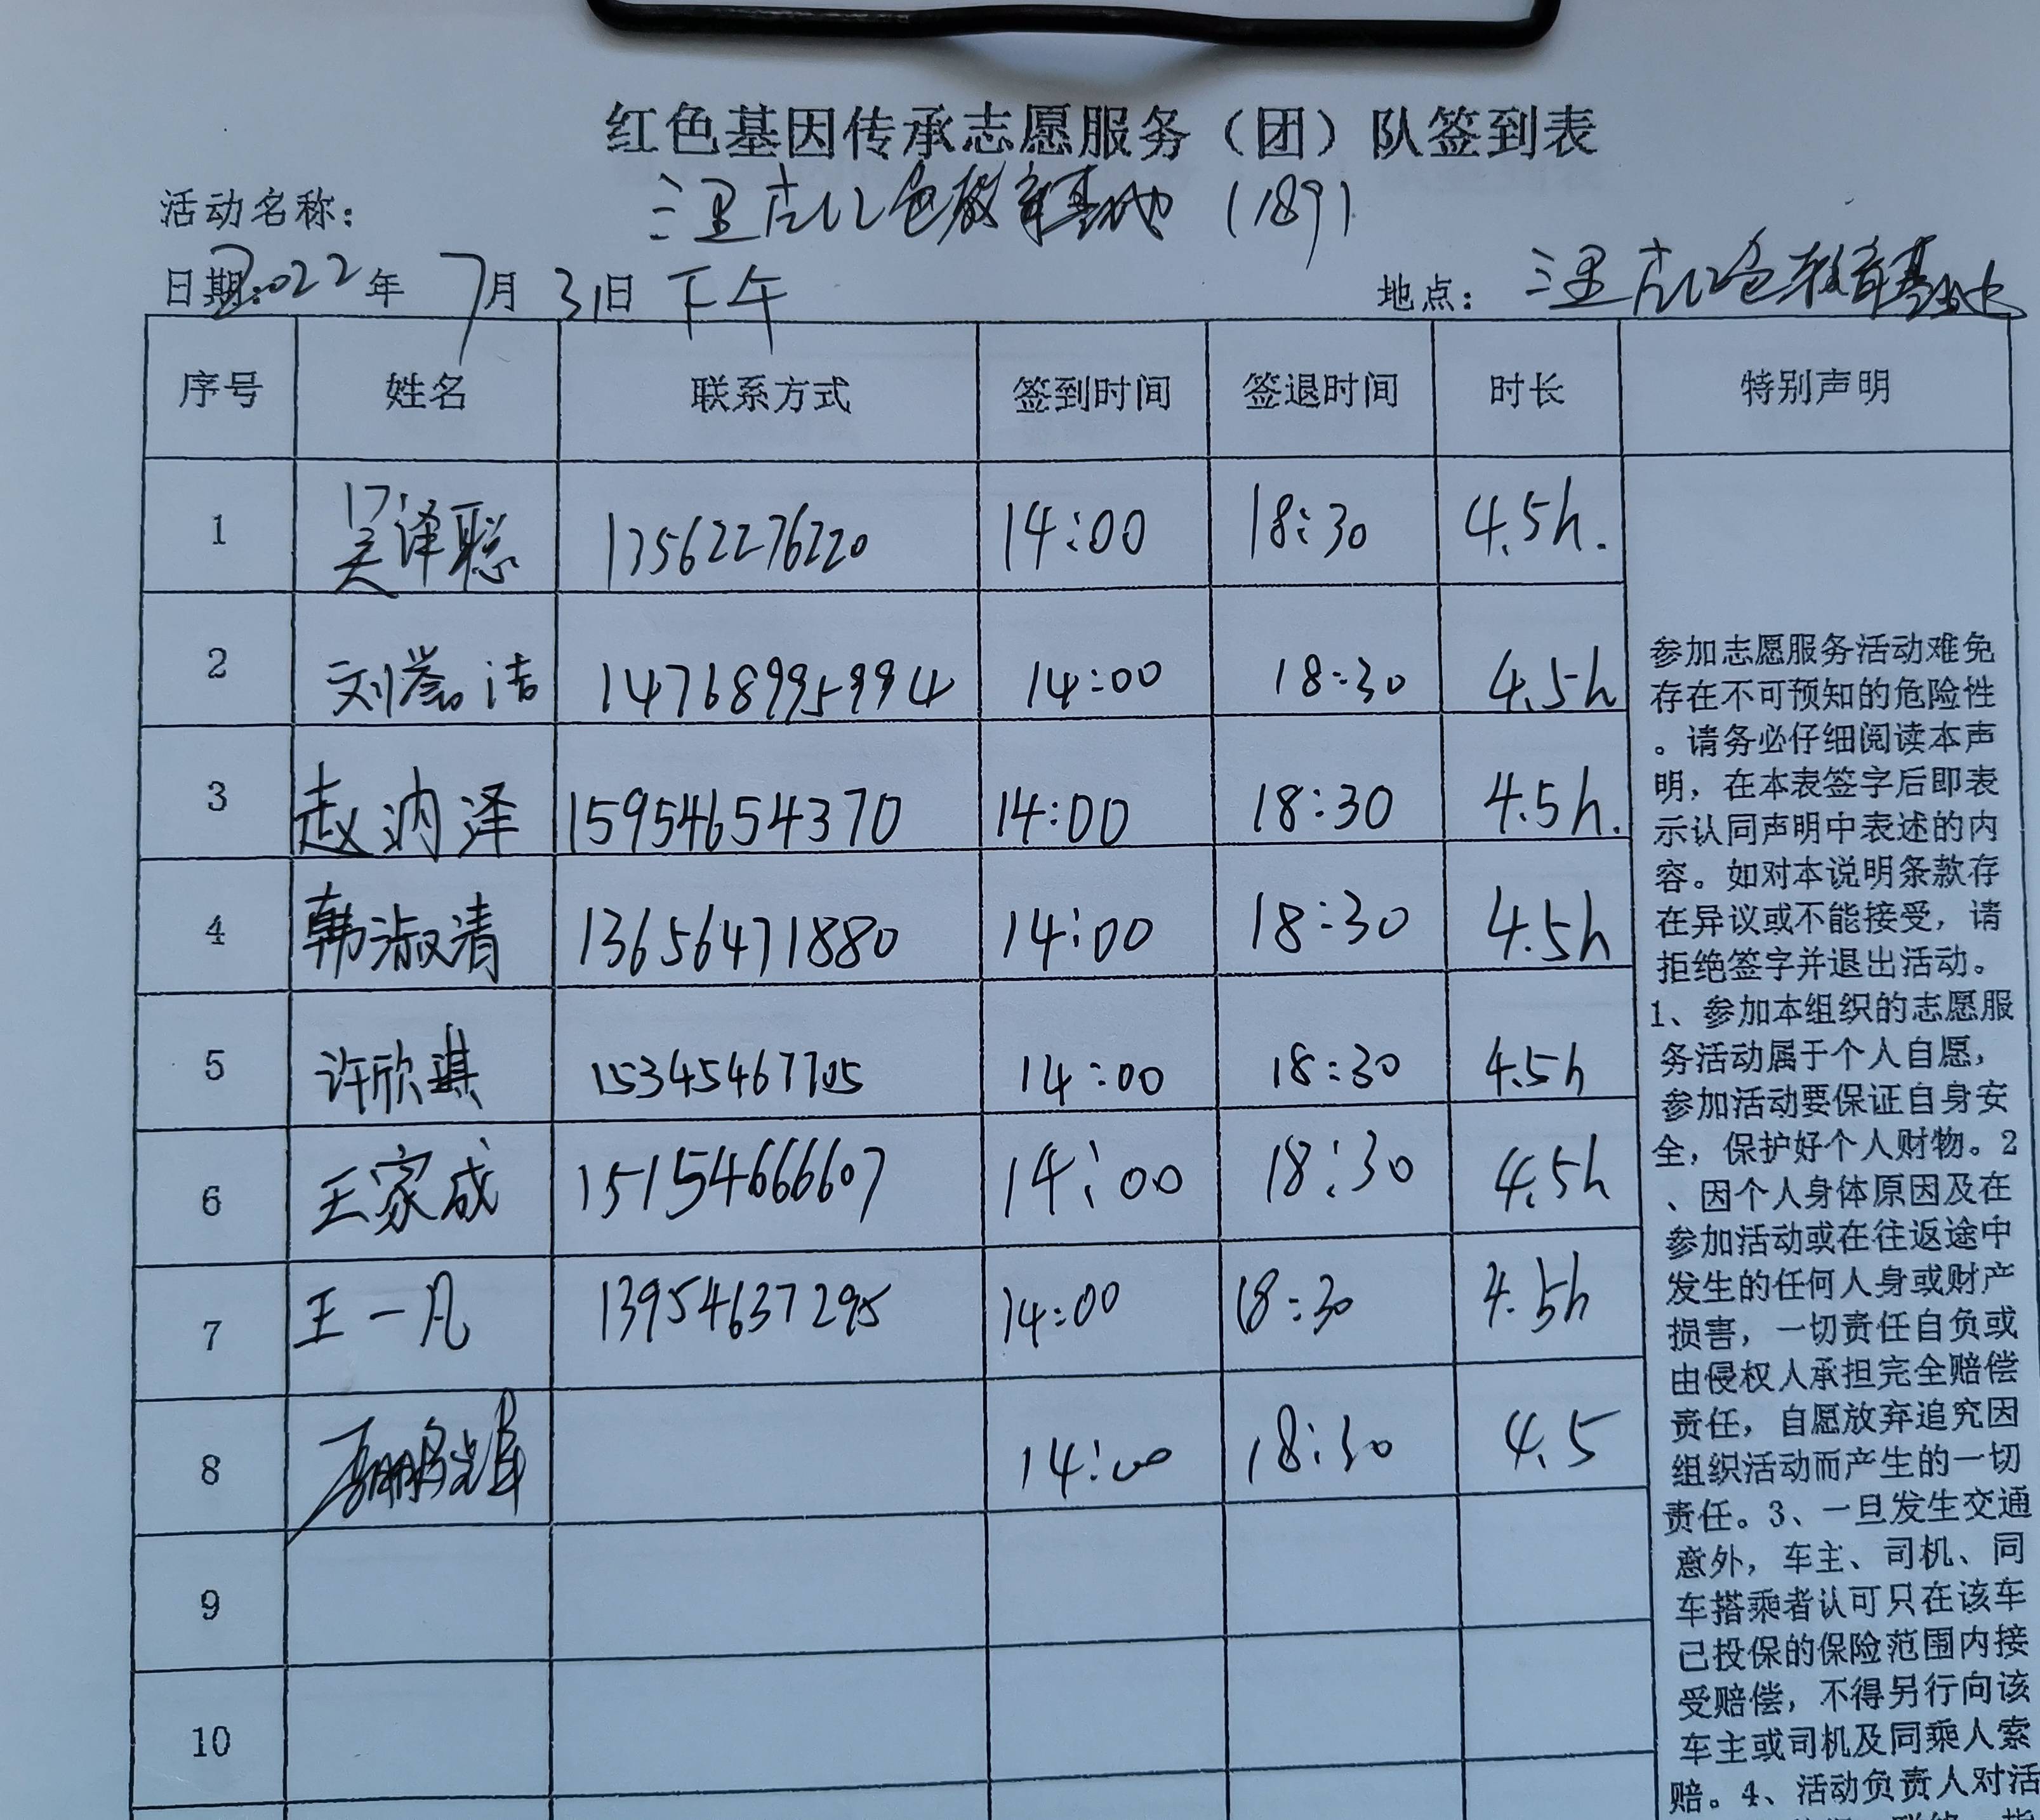 红色基因传承志愿服务（团）队签到表
活动名称： 三里庄红色教育基地（189）
日期：2022年 7月 31日 下午 地点：三里庄红色教育基地
序号 姓名 联系方式 签到时间 签退时间 时长 特别声明
1 吴泽聪 13562276220 14:00 18:30 4.5h.
2 刘誉洁 14768995994 14:00 18:30 4.5h
3 赵汭泽 15954654370 14:00 18:30 4.5h.
4 韩淑清 13656471880 14:00 18:30 4.5h
5 许欣琪 15345467705 14:00 18:30 4.5h
6 王家成 15154666607 14:00 18:30 4.5h
7 王一凡 13954637295 14:00 18:30 4.5h
8 14:00 18:30 4.5
9
10
参加志愿服务活动难免
存在不可预知的危险性
。请务必仔细阅读本声
明，在本表签字后即表
示认同声明中表述的内
容。如对本说明条款存
在异议或不能接受，请
拒绝签字并退出活动。
1、参加本组织的志愿服
务活动属于个人自愿，
参加活动要保证自身安
全，保护好个人财物。2
、因个人身体原因及在
参加活动或在往返途中
发生的任何人身或财产
损害，一切责任自负或
由侵权人承担完全赔偿
责任，自愿放弃追究因
组织活动而产生的一切
责任。3、一旦发生交通
意外，车主、司机、同
车搭乘者认可只在该车
已投保的保险范围内接
受赔偿，不得另行向该
车主或司机及同乘人索
赔。4、活动负责人对活